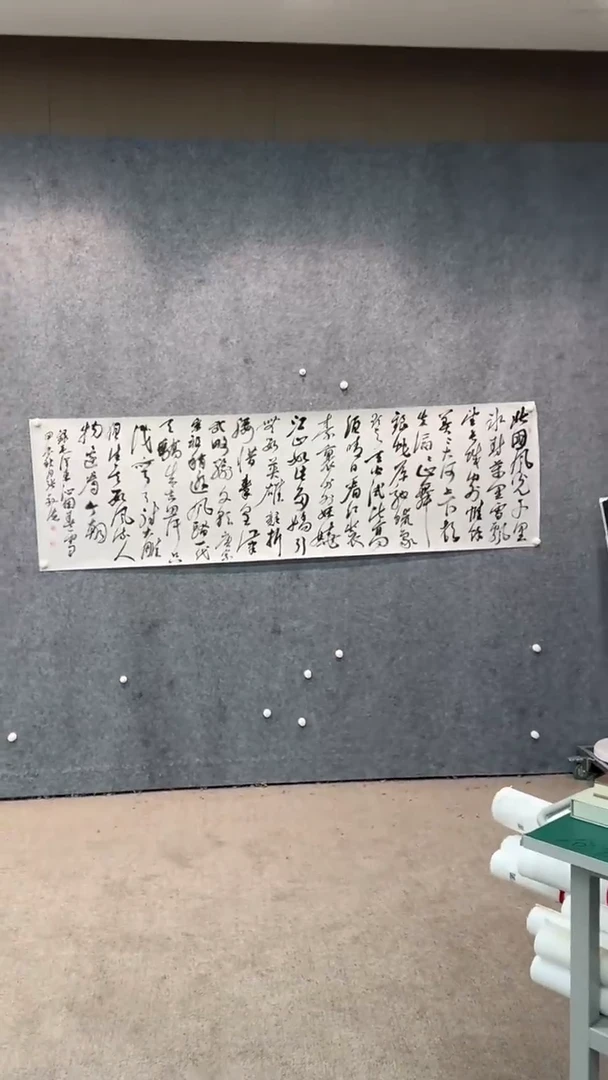 北国风光千里
冰封万里雪飘
望长城内外惟余
莽々大河上下顿
失滔々山舞
银蛇原驰蜡象
欲与天公试比高
须晴日看红装
素裹分外妖娆
江山如此多娇引
无数英雄竞折
腰惜秦皇汉
武略输文彩唐宗
宋祖稍逊风骚一代
天骄成吉思汗只
识弯弓射大雕
俱往矣数风流人
物还看今朝
录毛泽东沁园春雪